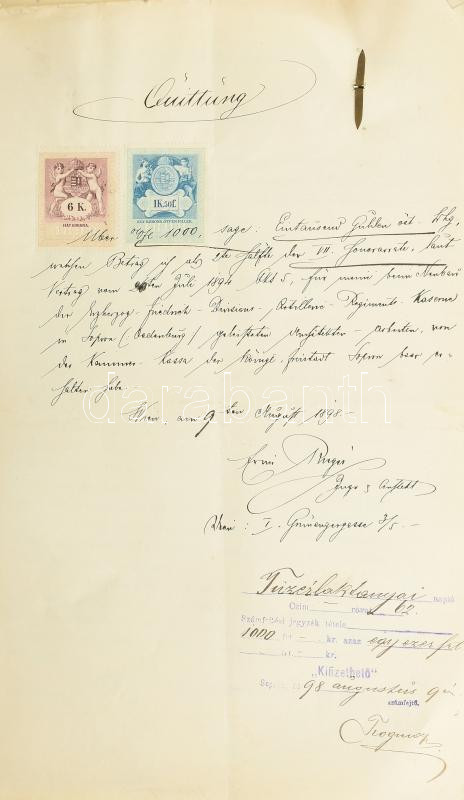 Quittung
6 K.
HAT KORONA.
1K.50f.
EGY KORONA ÖTVEN FILLÉR.
Über 1000, sage: Eintausend Gulden öst. Whg,
welchen Betrag ich als 2te Hälfte der VII. Honorarrate, laut
Vertrag vom Juli 1894 für meine beim Neubau
der Erzherzog-Friedrich-Divisions-Artillerie-Regiments-Kaserne
in Sopron (Oedenburg) geleisteten Architekten-Arbeiten, von
der Kammer-Kassa der Königl. Freistadt Sopron baar er-
halten habe.
darabanth
Wien, am 9ten August 1898.-
Wien: I. Grünangergasse 3/5 -
Tüzérlaktanyai napló
Czim rovat 62.
Számfejtési jegyzék tétele
1000 frt - kr. azaz egyezer frt
frt kr.
„Kifizethető"
98 augusztus 9
számfejtő.